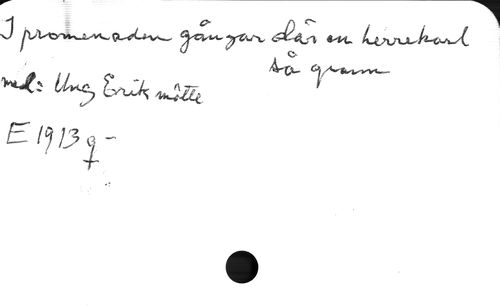 I promenaden gångar där en herrekarl
så gramm
med: Ung Erik mötte
E 1913 q -